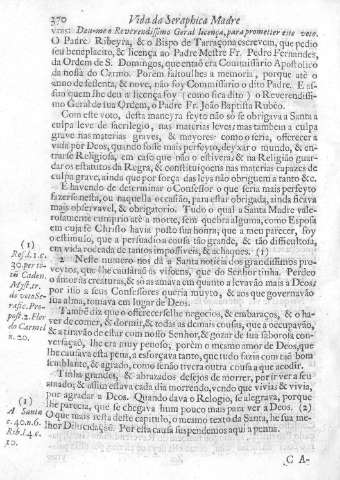 370 Vida da Seraphica Madre
versi Deu-me o Reverendissimo Geral licença, para prometter este voto.
O Padre Ribeyra, & o Bispo de Tarraçona escrevem, que pedio
seu beneplacito, & licença ao Padre Mestre Fr. Pedro Fernandes,
da Ordem de S. Domingos, que entaõ era Commissario Apostolico
da nossa do Carmo. Porèm faltoulhes a memoria, porque atè o
anno de sessenta, & nove, não foy Commissario o dito Padre. E as-
sim quem lhe deu a licença foy (como fica dito) o Reverendissi-
mo Geral de sua Ordem, o Padre Fr. Joaõ Baptista Rubeo.
Com este voto, desta maneyra feyto não só se obrigava a Santa a
culpa leve de sacrilegio, nas materias leves; mas tambem a culpa
grave nas materias graves, & mayores: como o seria, offerecer a
vida por Deos, quando fosse mais perfeyto, deyxar o mundo, & en-
trar se Religiosa, em caso que não o estivera; & na Religiaõ guar-
dar os estatutos da Regra, & constituiçoens nas materias capazes de
culpa grave, ainda que por força das leys não obriguem a tanto &c.
E havendo de determinar o Confessor o que seria mais perfeyto
fazerse nesta, ou naquella occasiaõ, para estar obrigada, ainda ficava
mais observavel, & obrigatorio. Tudo o qual a Santa Madre vale-
rosamente cumprio atè a morte, sem quebrar alguma, como Esposa
em cuja fè Christo havia posto sua honra; que a meu parecer, foy
o estimulo, que a persuadio a cousa tão grande, & tão difficultosa,
em vida rodeada de tantos impossiveis, & achaques. (1)
2 Neste numero nos dá a Santa noticia dos grandissimos pro-
veytos, que lhe causàraõ as visoens, que do Senhor tinha. Perdeo
o amor às creaturas, & só as amava em quanto a levavão mais a Deos;
por isto a seus Confessores queria muyto, & aos que governavão
sua alma, tomava em lugar de Deos.
Tambem diz que o offerecerselhe negocios, & embaraços, & o ha-
ver de comer, & dormir, & todas as demais cousas, que a occupavão,
& a tiravão de estar com nosso Senhor, & gozar de sua saborosa con-
versaçaõ, lhe era muy penoso, porèm o mesmo amor de Deos, que
lhe causava esta pena, a esforçava tanto, que tudo fazia com taõ bom
semblante, & agrado, como senão tivera outra cousa a que acodir.
Tinha grandes, & abrazados desejos de morrer, por ir ver a seu
amado; & assim estava cada dia morrendo, vendo que vivia; & vivia,
por agradar a Deos. Quando dava o Relogio, se alegrava, porque
lhe parecia, que se chegava hum pouco mais para ver a Deos. (2)
O que mais resta deste capitulo, o mesmo texto da Santa, he sua me-
lhor Dilucidaçaõ. Por esta causa suspendemos aqui a penna.
(1)
Rest. l. 1. c.
do Carmel
n. 20.
(1)
A Santa
c. 40. n. 6.
Rib. l. 4. c.
10.
C A-